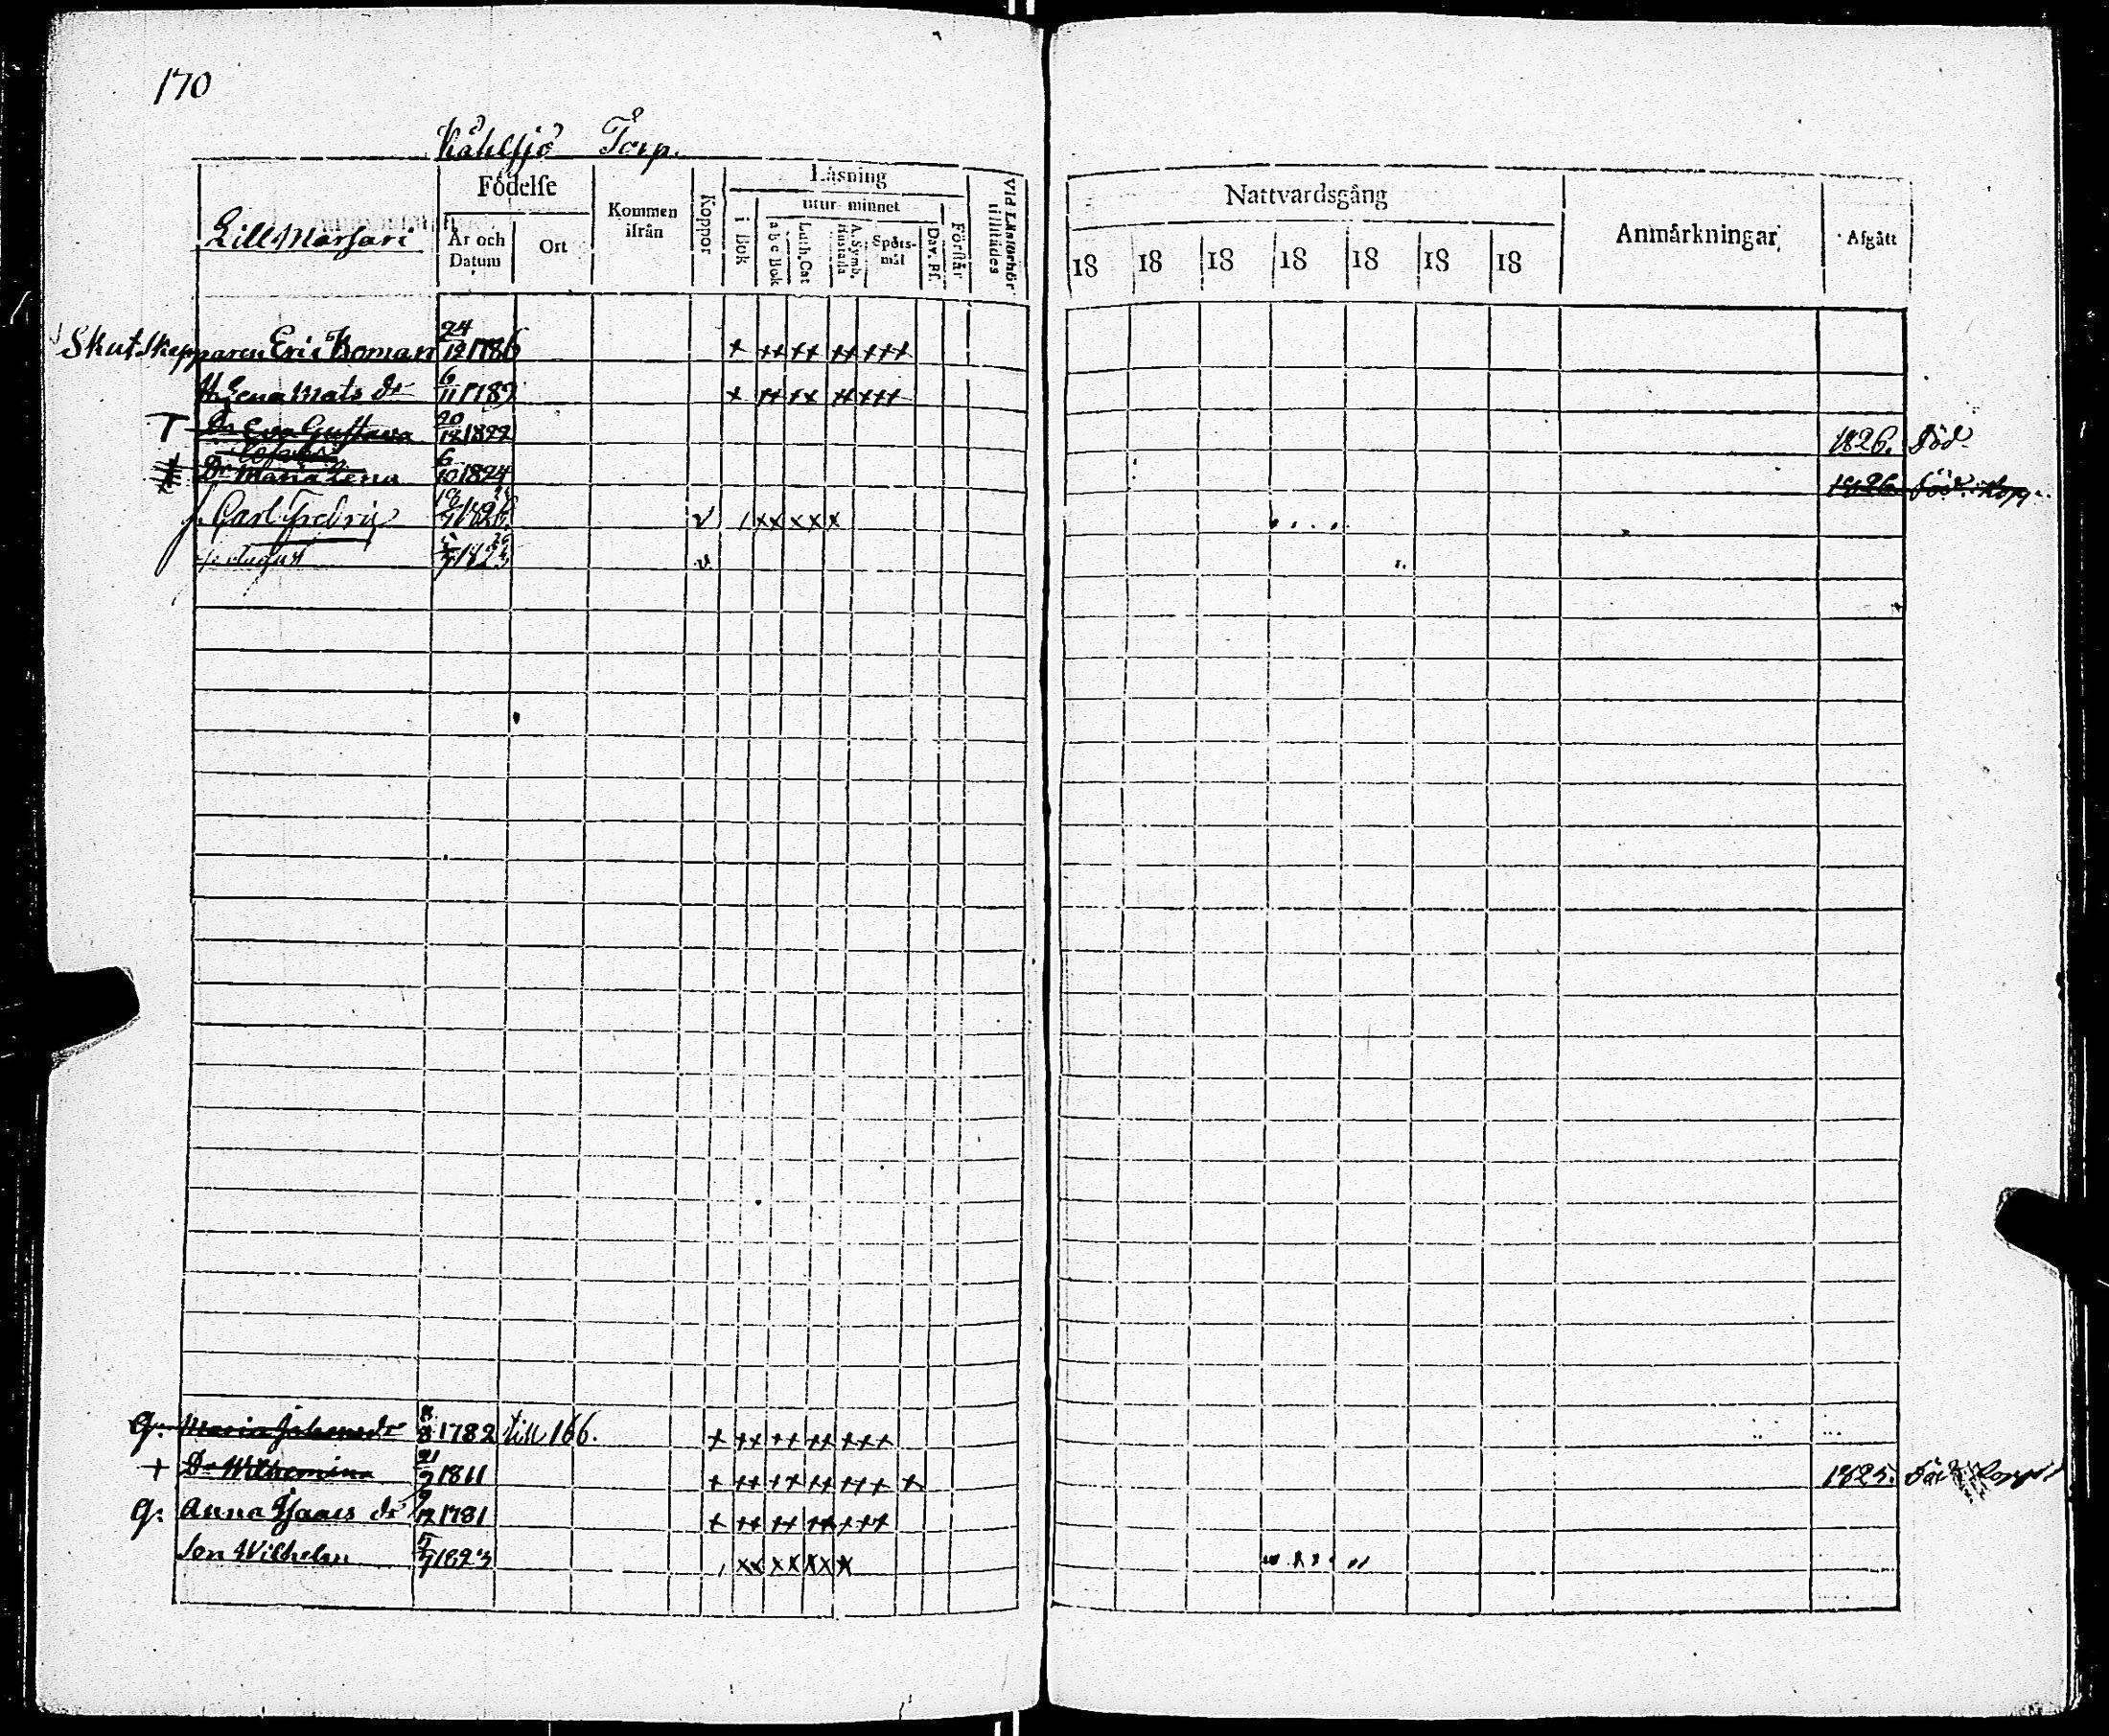 170
Kåhlsjö Torp.
Lill Marsari
Födelse
År och Datum
Ort
Kommen ifrån
Koppor
Läsning
i Bok
utur minnet
a b c Bok
Luth. Cat
A. Symb. Hustafla
Spörs-mål
Dav. Ps.
Förstår
Nattvardsgång
18 18 18 18 18 18 18
Anmärkningar
Afgått
Skutskepparen Eric Boman 24/12 1786 + ++ ++ ++ +++
H. Lena Mats dr 6/11 1789 + ++ ++ ++ +++
T Dr Eva Gustava 20/12 1822 1826. Död
Dr Maria Lena 6/10 1824 1826. Död. Kopp.
f. Carl Fredric v / x x x x x
f. August v
g. Maria Johansdr 8/8 1782 till 166. + ++ ++ ++ +++
+ Dr Wilhemina 21/9 1811 + ++ ++ ++ +++ + 1825. Död
g. Anna Isaacs dr 9/12 1781 + ++ ++ ++ +++
Son Wilhelm 5/7 1823 / xx xx xx x